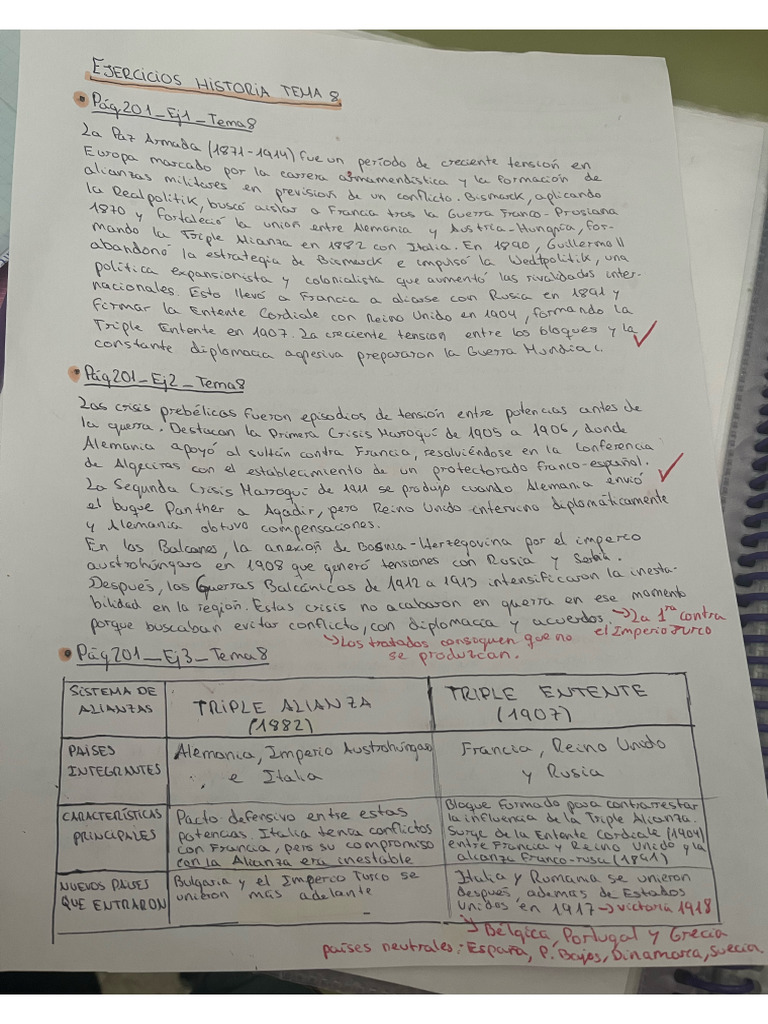 EJERCICIOS HISTORIA TEMA 8
Pág.201_Ej1_Tema8
La Paz Armada (1871-1914) fue un período de creciente tensión en
Europa marcado por la carrera armamendística y la formación de
alianzas militares en previsión de un conflicto. Bismarck, aplicando
la Realpolitik, buscó aislar a Francia tras la Guerra Franco-Prusiana
1870 y fortaleció la unión entre Alemania y Austria-Hungría, for-
mando la Triple Alianza en 1882 con Italia. En 1890, Guillermo II
abandonó la estrategia de Bismarck e impulsó la Weltpolitik, una
política expansionista y colonialista que aumentó las rivalidades inter-
nacionales. Esto llevó a Francia a aliarse con Rusia en 1891 y
firmar la Entente Cordiale con Reino Unido en 1904, formando la
Triple Entente en 1907. La creciente tensión entre los bloques y la
constante diplomacia agresiva prepararon la Guerra Mundial.
Pág.201_Ej2_Tema8
Las crisis prebélicas fueron episodios de tensión entre potencias antes de
la guerra. Destacan la Primera Crisis Marroquí de 1905 a 1906, donde
Alemania apoyó al sultán contra Francia, resolviéndose en la Conferencia
de Algeciras con el establecimiento de un protectorado franco-español.
La Segunda Crisis Marroquí de 1911 se produjo cuando Alemania envió
el buque Panther a Agadir, pero Reino Unido intervino diplomáticamente
y Alemania obtuvo compensaciones.
En los Balcanes, la anexión de Bosnia-Herzegovina por el imperio
austrohúngaro en 1908 que generó tensiones con Rusia y Serbia.
Después, las Guerras Balcánicas de 1912 a 1913 intensificaron la inesta-
bilidad en la región. Estas crisis no acabaron en guerra en ese momento
porque buscaban evitar conflicto, con diplomacia y acuerdos. → La 1ª contra
el Imperio Turco
→ Los tratados consiguen que no
se produzcan.
Pág201_Ej3_Tema8
SISTEMA DE ALIANZAS
TRIPLE ALIANZA
(1882)
TRIPLE ENTENTE
(1907)
PAÍSES
INTEGRANTES
Alemania, Imperio Austrohúngaro
e Italia
Francia, Reino Unido
y Rusia
CARACTERÍSTICAS
PRINCIPALES
Pacto defensivo entre estas
potencias. Italia tenía conflictos
con Francia, pero su compromiso
con la Alianza era inestable
Bloque formado para contrarrestar
la influencia de la Triple Alianza.
Surge de la Entente Cordiale (1904)
entre Francia y Reino Unido y la
alianza Franco-rusa (1891)
NUEVOS PAÍSES
QUE ENTRARON
Bulgaria y el Imperio Turco se
unieron más adelante
Italia y Rumania se unieron
después, además de Estados
Unidos en 1917 → victoria 1918
→ Bélgica, Portugal y Grecia
países neutrales: España, P. Bajos, Dinamarca, Suecia.